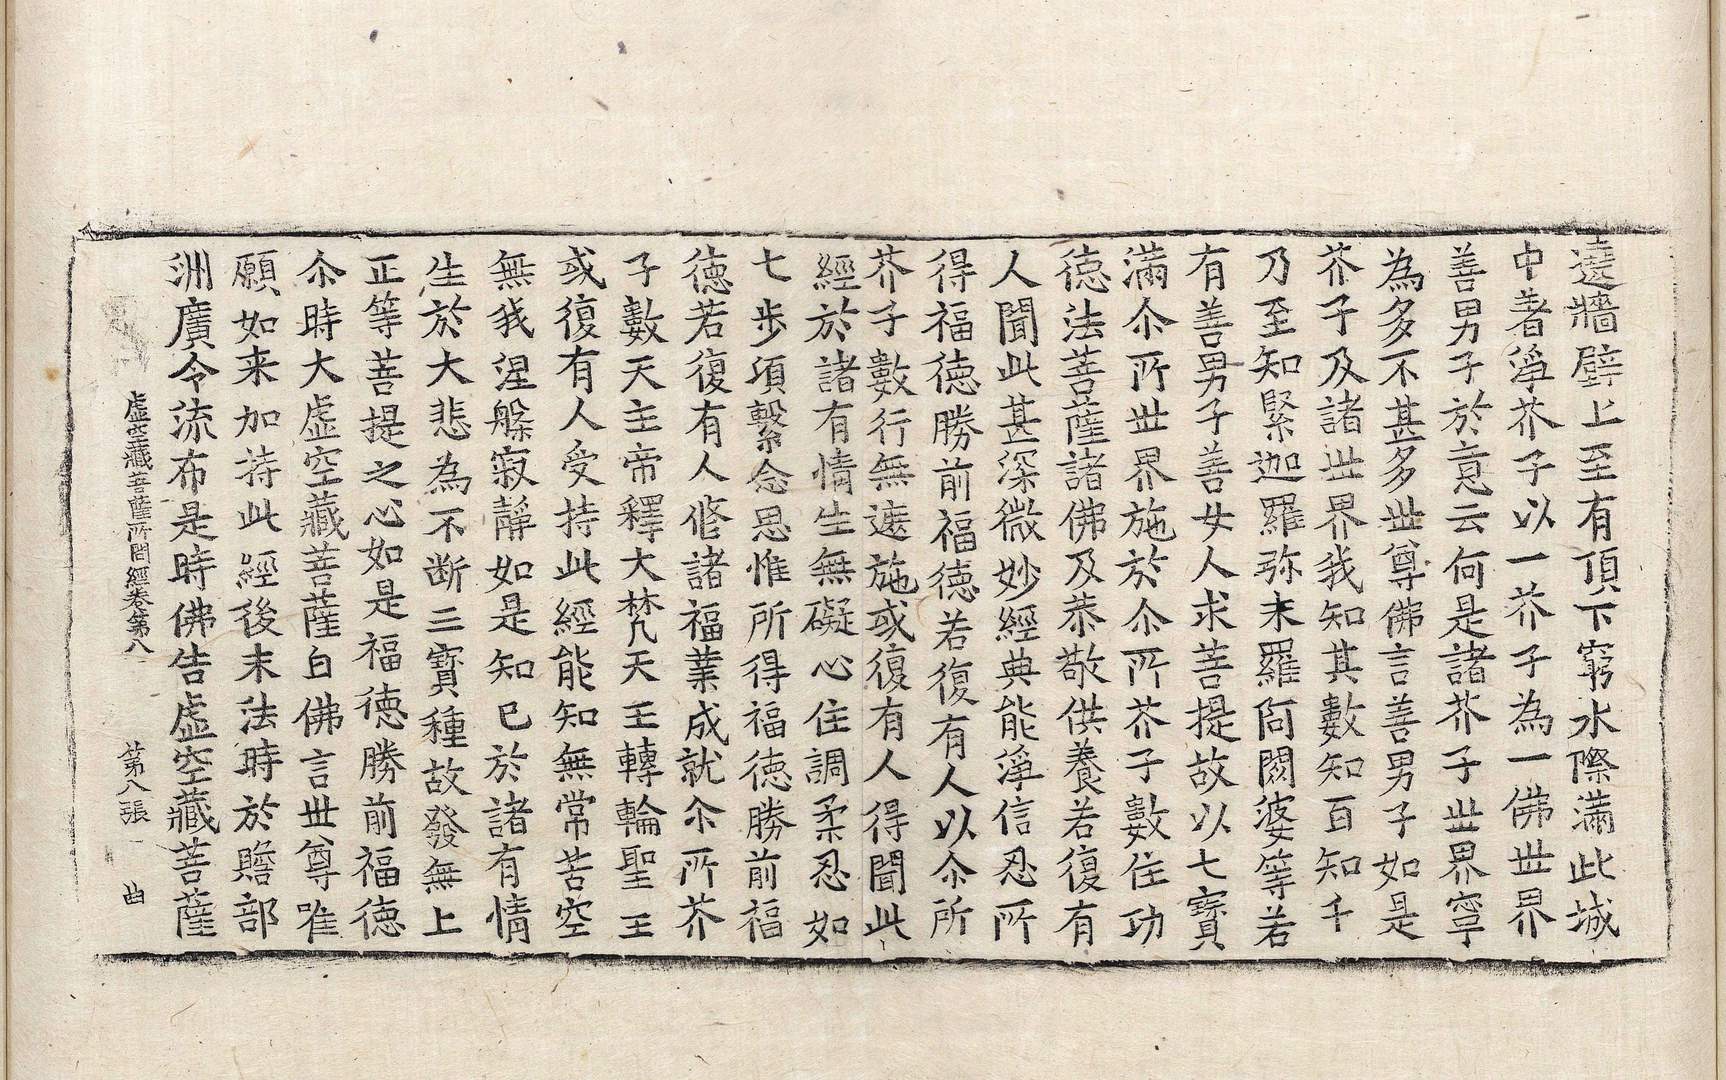 遶牆壁上至有頂下窮水際滿此城
中著淨芥子以一芥子為一佛世界
善男子於意云何是諸芥子世界寧
為多不甚多世尊佛言善男子如是
芥子及諸世界我知其數知百知千
乃至知緊迦羅弥末羅阿閦婆等若
有善男子善女人求菩提故以七寳
滿尒所世界施於尒所芥子數住功
徳法菩薩諸佛及恭敬供養若復有
人聞此甚深微妙經典能淨信忍所
得福徳勝前福徳若復有人以尒所
芥子數行無遮施或復有人得聞此
經於諸有情生無礙心住調柔忍如
七步頃繫念思惟所得福徳勝前福
徳若復有人修諸福業成就尒所芥
子數天主帝釋大梵天王轉輪聖王
或復有人受持此經能知無常苦空
無我涅槃寂靜如是知已於諸有情
生於大悲為不断三寳種故發無上
正等菩提之心如是福徳勝前福徳
尒時大虛空藏菩薩白佛言世尊唯
願如来加持此經後末法時於贍部
洲廣令流布是時佛告虛空藏菩薩
虛空藏菩薩所問經卷第八 第八張 曲